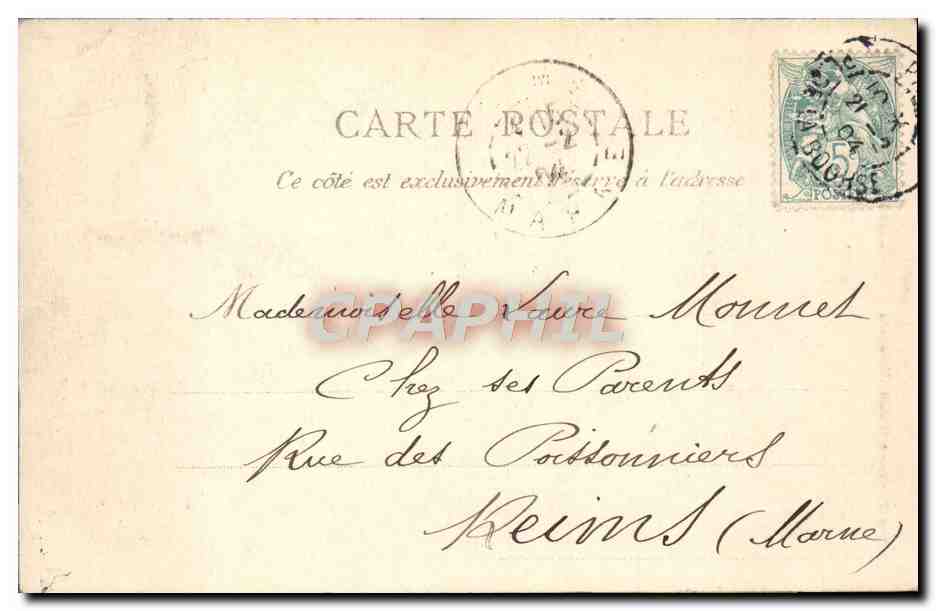 CARTE POSTALE
Ce côté est exclusivement réservé à l'adresse
21
04
LA BOURSE
5
POSTES
CPAPHIL
Mademoiselle Laure Monnet
Chez ses Parents
Rue des Poissonniers
Reims (Marne)